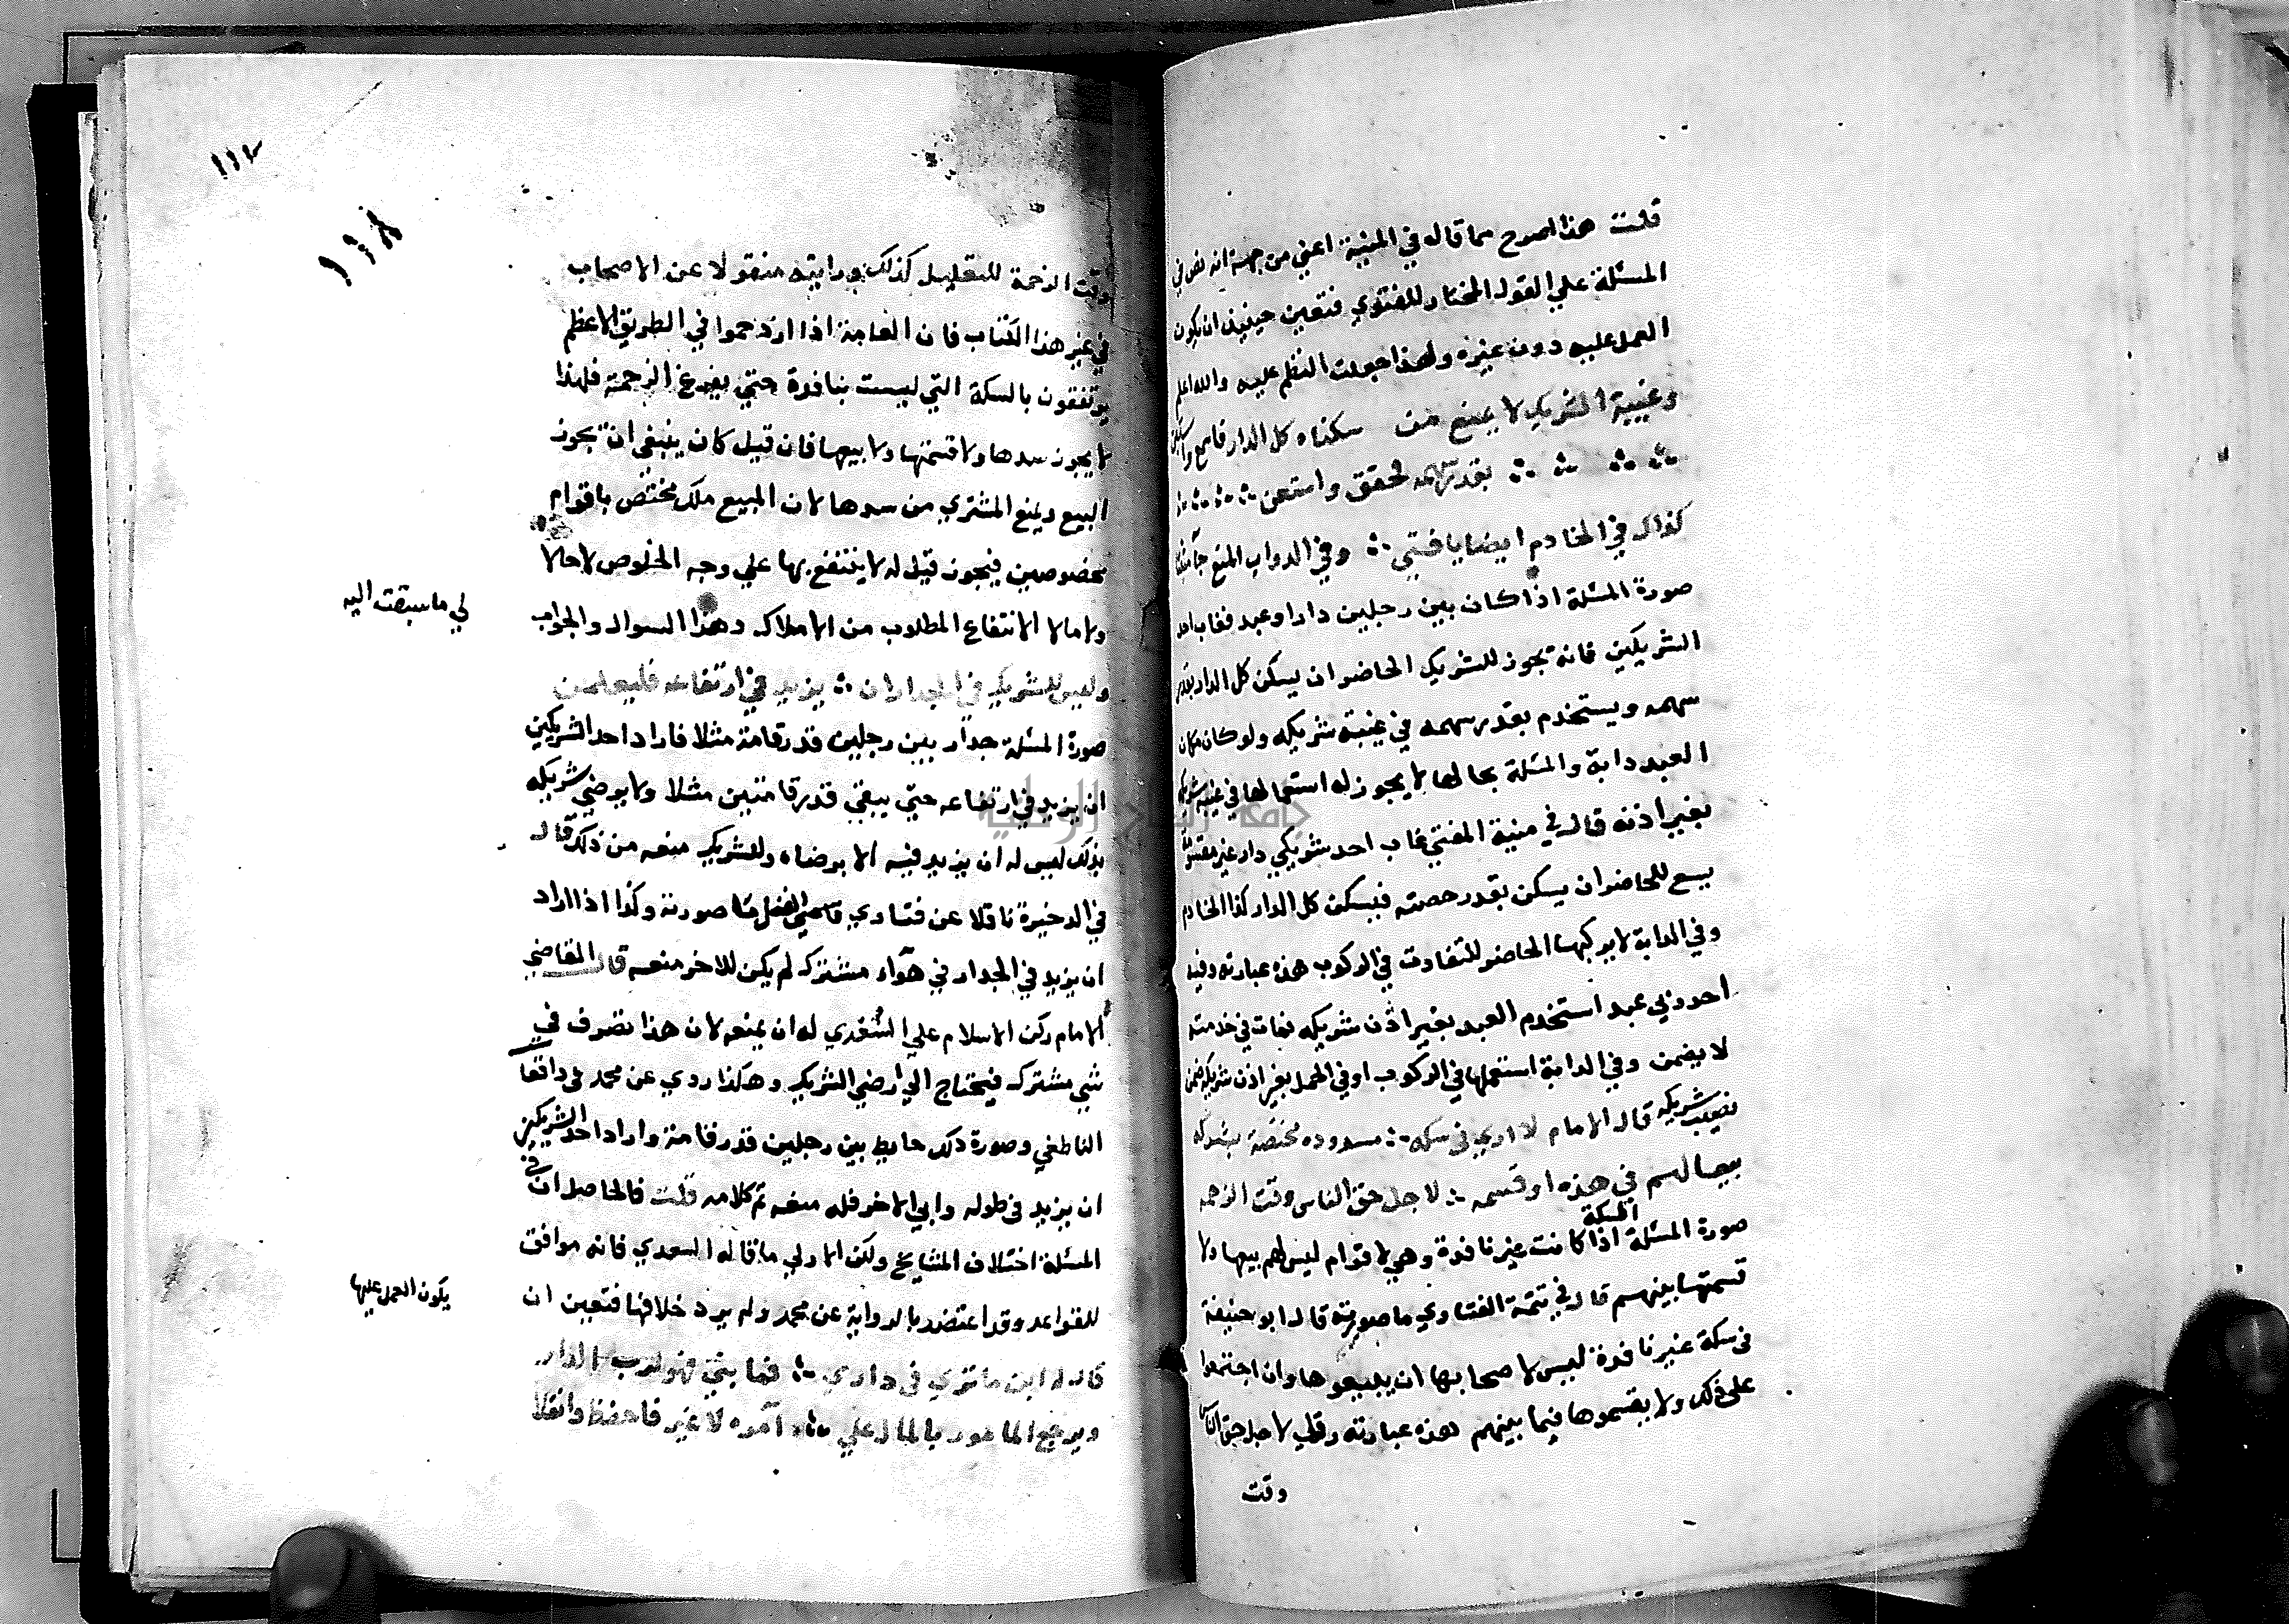 قلت هذا اصرح مما قاله في المنية اعني من جهة انه نص في
المسئلة علي القول المختار للفتوي فتعين حينيذ ان يكون
العمل عليه دون غيره ولهذا حولت النظم عليه والله اعلم
وغيبة الشريك لا يمنع من سكناه كل الدار فاسمع
بقدر سهمه تحقق واستعن
كذاك في الخادم ايضا يا فتي وفي الدواب المنع جآ مثبتا
صورة المسئلة اذا كان بين رجلين دارا وعبد فغاب احد
الشريكين فانه يجوز للشريك الحاضر ان يسكن كل الدار بقدر
سهمه ويستخدم بقدر سهمه في غيبة شريكه ولو كان مكان
العبد دابة والمسئلة بحالها لا يجوز له استعمالها في غيبة شريكه
بغير اذنه قال في منية المفتي غاب احد شريكي دار غير مقسومة
يسع للحاضر ان يسكن بقدر حصته فيسكن كل الدار كذا الخادم
وفي الدابة لا يركبها الحاضر للتفاوت في الركوب هذه عبارته وفيه
احد ربي عبد استخدم العبد بغير اذن شريكه فمات في خدمته
لا يضمن وفي الدابة استعملها في الركوب او في الحمل بغير اذن شريكه ضمن
نصيب شريكه قال الامام لا اري في سكه مسدوده مختصة بشركه
بيعا لهم في هذه او قسمه لاجل حق الناس وقت الزحمه
صورة المسئلة اذا كانت السكة غير نافدة وهي لاقوام ليس لهم بيعها ولا
قسمتها بينهم قال في تتمة الفتاوي ما صورته قال ابو حنيفة
في سكة غير نافدة ليس لاصحابها ان يبيعوها وان اجتمعوا
علي ذلك ولا يقسموها فيما بينهم هذه عبارته وقلت لاجل حق الناس
وقت
١١٧
١١٨
وقت الزحمة للتعليل كذلك ورايته منقولا عن الاصحاب
في غير هذا الكتاب فان العامة اذا ازدحموا في الطريق الاعظم
يرتفقون بالسكة التي ليست بنافدة حتي يفرغ الزحمة فلهذا
لا يجوز سدها ولا قسمتها ولا بيعها فان قيل كان ينبغي ان يجوز
البيع ويمنع المشتري من سدها لان المبيع ملك مختص باقوام
مخصوصين فيجوز قيل له لا ينتفع بها علي وجه الخلوص لا حالا
ولا مالا الانتفاع المطلوب من الاملاك وهذا السوال والجواب
لي ما سبقت اليه
وليس للشريك في الجدار ان يزيد في ارتفاعه فليعلمن
صورة المسئلة جدار بين رجلين قدر قامة مثلا فاراد احد الشريكين
ان يزيد في ارتفاعه حتي يبقي قدر قامتين مثلا ولا يرضي شريكه
بذلك ليس له ان يزيد فيه الا برضاه وللشريك منعه من ذلك قال
في الدخيرة ناقلا عن فتاوي قاضي الفضل ما صورته وكذا اذا اراد
ان يزيد في الجدار في هوآء مشترك لم يكن للاخر منعه قال القاضي
الامام ركن الاسلام علي السغدي له ان يمنعه لان هذا تصرف في
شي مشترك فيحتاج الي رضي الشريك وهكذا روي عن محمد في واقعات
الناطفي وصورة ذلك حايط بين رجلين قدر قامة واراد احد الشريكين
ان يزيد في طوله وابي الاخر فله منعه تم كلامه قلت فالحاصل ان في
المسئلة اختلاف المشايخ ولكن الاولي ما قاله السعدي فانه موافق
للقواعد وقد اعتضد بالرواية عن محمد ولم يرد خلافها فتعين ان
يكون العمل عليها
قال له ابن ما تري في داري فما بني فهو لرب الدار
ويرجع المامور بالمال علي آمره لا غير فاحفظ وانقلا